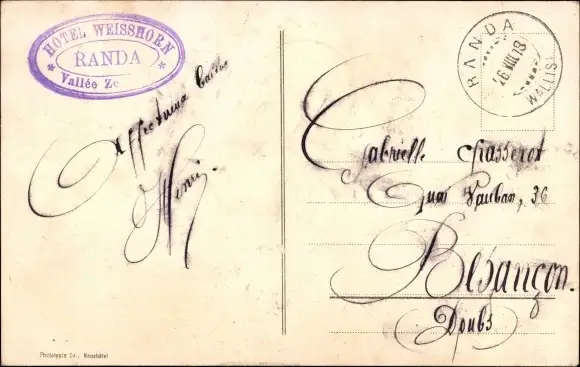 HOTEL WEISSHORN
RANDA
Vallée Ze
Affectueux
Henri.
RANDA
26 VIII. 18
(WALLIS)
Gabrielle Chasserot
Quai Vauban, 36
Besançon.
Doubs
Phototypie Co., Neuchâtel